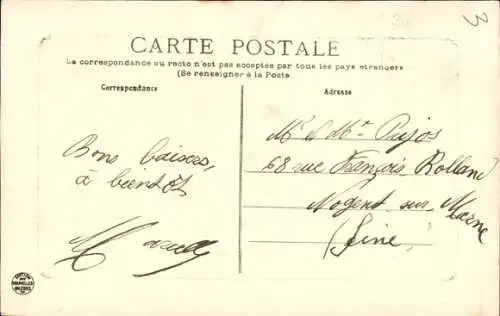 3
CARTE POSTALE
La correspondance au recto n'est pas acceptée par tous les pays étrangers
(Se renseigner à la Poste
Correspondance
Adresse
Bons baisers,
à bientôt
Mr & Mme Pujos
68 rue François Rolland
Nogent sur Marne
(Seine)